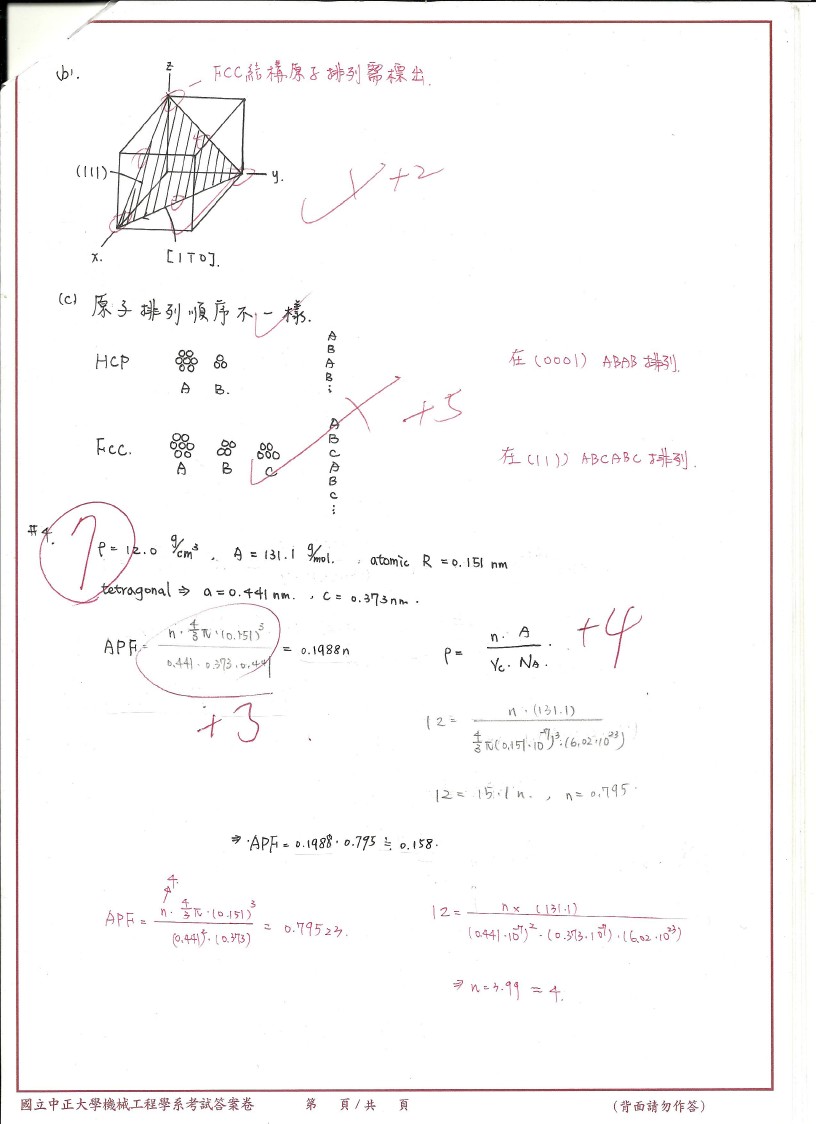 (b).
z
FCC結構原子排列需標出.
(111)
y.
x.
[1T0].
+2
(c) 原子排列順序不一樣.
HCP
A B.
A
B
A
B
:
在(0001) ABAB排列.
+5
FCC.
A B C
A
B
C
A
B
C
:
在(111) ABCABC排列.
#4.
7
ρ= 12.0 g/cm³ , A = 131.1 g/mol. , atomic R = 0.151 nm
tetragonal ⇒ a = 0.441 nm. , c = 0.373 nm.
APF = n·4/3π·(0.151)³ / 0.441·0.373·0.441 = 0.1988n
+3
ρ= n·A / Vc·NA.
+4
12 = n·(131.1) / 4/3π(0.151·10⁻⁷)³·(6.02·10²³)
12 = 15.1n. , n = 0.795.
⇒ APF = 0.1988·0.795 ≒ 0.158.
4.
APF = n·4/3π·(0.151)³ / (0.441)²·(0.373) = 0.79523.
12 = n×(131.1) / (0.441·10⁻⁷)²·(0.373·10⁻⁷)·(6.02·10²³)
⇒ n = 3.99 ≈ 4.
國立中正大學機械工程學系考試答案卷 第 頁/共 頁 (背面請勿作答)